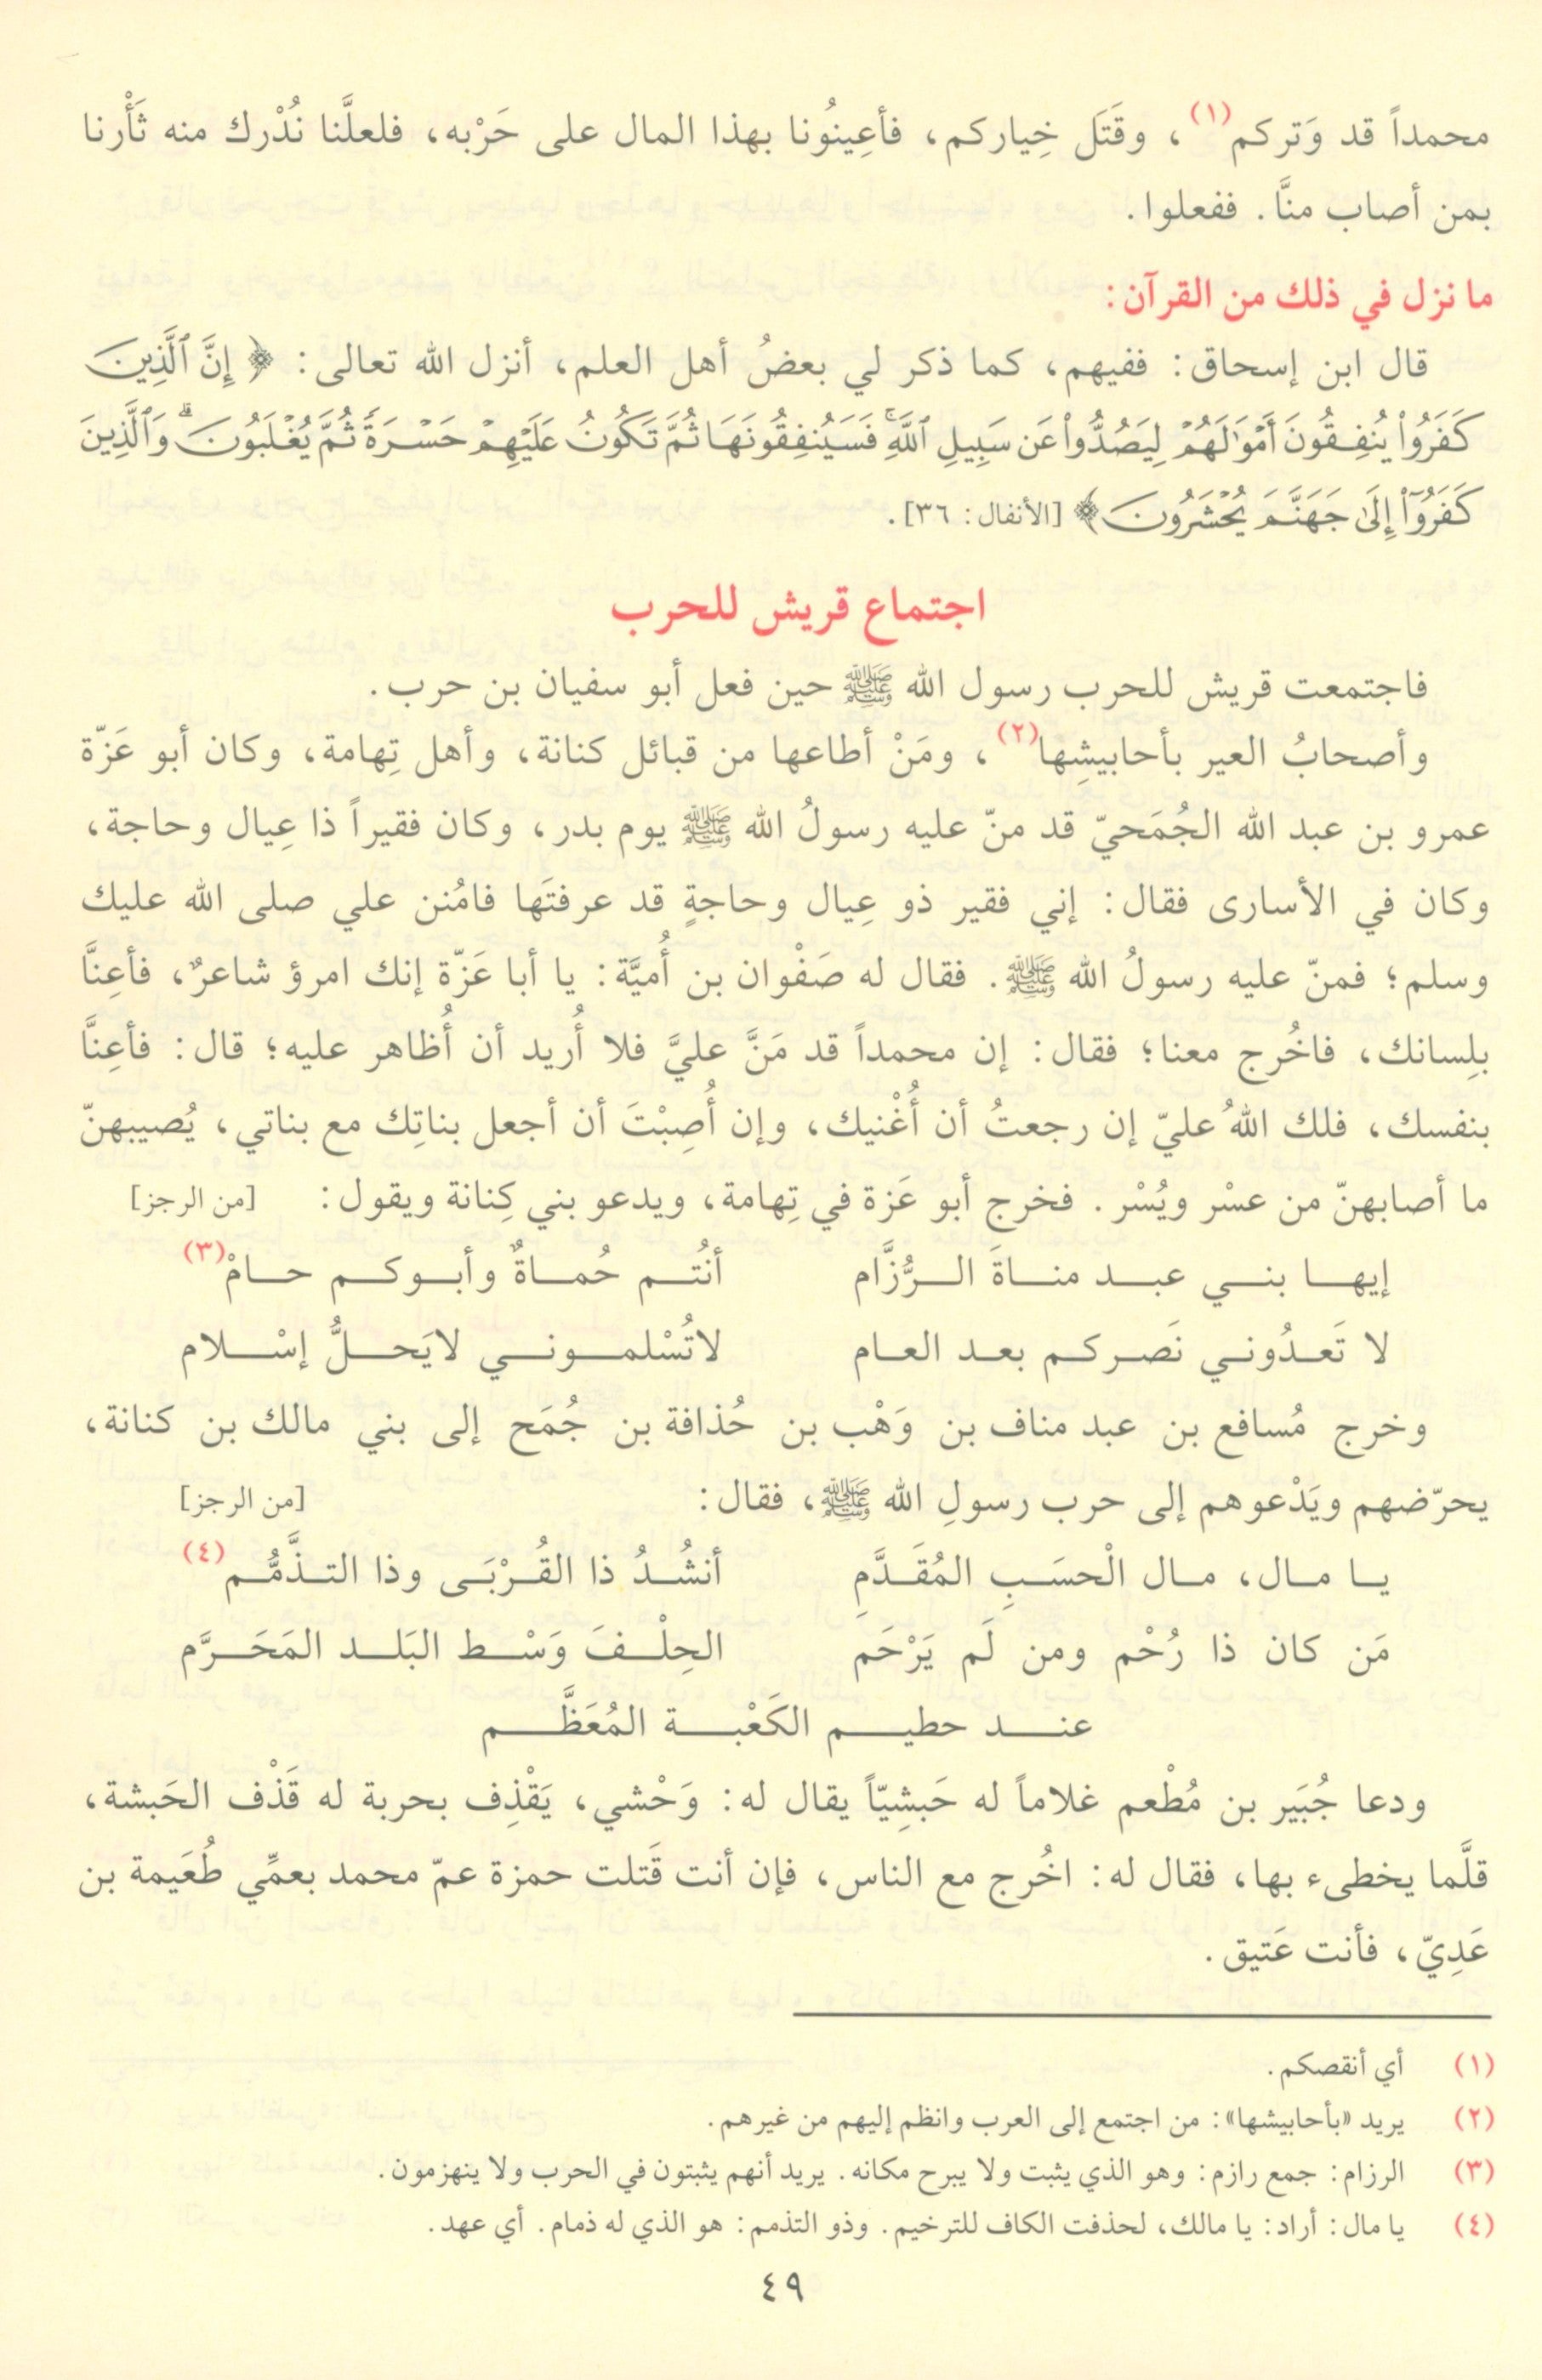 محمداً قد وَتركم(١)، وقَتَل خِياركم، فأعِينُونا بهذا المال على حَرْبه، فلعلَّنا نُدْرك منه ثَأْرنا
بمن أصاب منَّا. ففعلوا.
ما نزل في ذلك من القرآن:
قال ابن إسحاق: ففيهم، كما ذكر لي بعضُ أهل العلم، أنزل الله تعالى: ﴿ إِنَّ ٱلَّذِينَ
كَفَرُوا۟ يُنفِقُونَ أَمْوَٰلَهُمْ لِيَصُدُّوا۟ عَن سَبِيلِ ٱللَّهِ ۚ فَسَيُنفِقُونَهَا ثُمَّ تَكُونُ عَلَيْهِمْ حَسْرَةً ثُمَّ يُغْلَبُونَ ۗ وَٱلَّذِينَ
كَفَرُوٓا۟ إِلَىٰ جَهَنَّمَ يُحْشَرُونَ ﴾ [الأنفال: ٣٦].
اجتماع قريش للحرب
فاجتمعت قريش للحرب رسول الله ﷺ حين فعل أبو سفيان بن حرب.
وأصحابُ العير بأحابيشِها(٢)، ومَنْ أطاعها من قبائل كنانة، وأهل تِهامة، وكان أبو عَزّة
عمرو بن عبد الله الجُمَحيّ قد منّ عليه رسولُ الله ﷺ يوم بدر، وكان فقيراً ذا عِيال وحاجة،
وكان في الأسارى فقال: إني فقير ذو عِيال وحاجةٍ قد عرفتَها فامُنن علي صلى الله عليك
وسلم؛ فمنّ عليه رسولُ الله ﷺ. فقال له صَفْوان بن أُميَّة: يا أبا عَزّة إنك امرؤ شاعرٌ، فأعِنَّا
بلِسانك، فاخُرج معنا؛ فقال: إن محمداً قد مَنَّ عليَّ فلا أُريد أن أُظاهر عليه؛ قال: فأعِنَّا
بنفسك، فلك اللهُ عليّ إن رجعتُ أن أُغْنيك، وإن أُصِبْتَ أن أجعل بناتِك مع بناتي، يُصيبهنّ
ما أصابهنّ من عسْر ويُسْر. فخرج أبو عَزة في تِهامة، ويدعو بني كِنانة ويقول: [من الرجز]
إيهـا بنـي عبـد منـاةَ الـرُّزَّام أنتُـم حُمـاةٌ وأبـوكـم حـامْ(٣)
لا تَعـدُونـي نَصـركـم بعـد العـام لاتُسْلمـونـي لايَحـلُّ إسْـلام
وخرج مُسافع بن عبد مناف بن وَهْب بن حُذافة بن جُمَح إلى بني مالك بن كنانة،
يحرّضهم ويَدْعوهم إلى حرب رسولِ الله ﷺ، فقال: [من الرجز]
يـا مـال، مـال الْحسَـبِ المُقَـدَّمِ أنشُـدُ ذا القُـرْبَـى وذا التـذَّمُّـم(٤)
مَن كان ذا رُحْم ومن لَم يَرْحَم الحِلْـفَ وَسْـط البَلـد المَحَـرَّم
عنـد حطيـم الكَعْبـة المُعَظَّـم
ودعا جُبَير بن مُطْعم غلاماً له حَبشِيّاً يقال له: وَحْشي، يَقْذِف بحربة له قَذْف الحَبشة،
قلَّما يخطىء بها، فقال له: اخُرج مع الناس، فإن أنت قَتلت حمزة عمّ محمد بعمِّي طُعَيمة بن
عَدِيّ، فأنت عَتيق.
(١) أي أنقصكم.
(٢) يريد «بأحابيشها»: من اجتمع إلى العرب وانظم إليهم من غيرهم.
(٣) الرزام: جمع رازم: وهو الذي يثبت ولا يبرح مكانه. يريد أنهم يثبتون في الحرب ولا ينهزمون.
(٤) يا مال: أراد: يا مالك، لحذفت الكاف للترخيم. وذو التذمم: هو الذي له ذمام. أي عهد.
٤٩